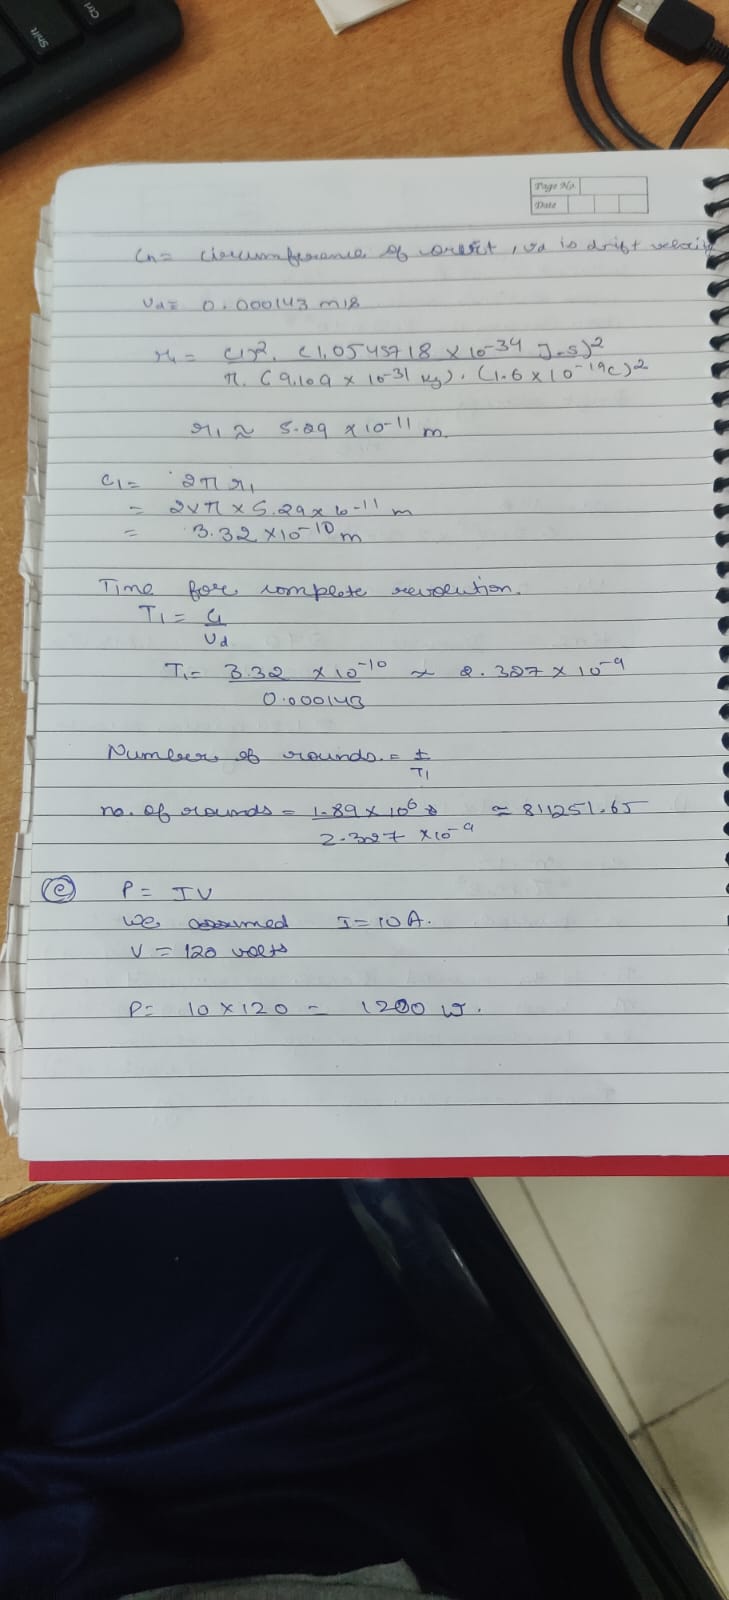 Shift
Ctrl
Page No.
Date
Cn = circumference of orbit, vd is drift velocity
Vd = 0.000143 m/s
r1 = (1)². (1.0545718 × 10-34 J-s)²
π. (9.109 × 10-31 kg). (1.6 × 10-19C)²
r1 ≈ 5.29 × 10-11 m.
C1 = 2π r1
= 2×π × 5.29 × 10-11 m
= 3.32 × 10-10 m
Time for complete revolution.
T1 = C1
Vd
T1 = 3.32 × 10-10 ≈ 2.327 × 10-9
0.000143
Number of rounds = t
T1
no. of rounds = 1.89 × 10⁶ s ≈ 811251.65
2.327 × 10-9
(e) P = IV
we assumed I = 10 A.
V = 120 volts
P = 10 × 120 = 1200 W.